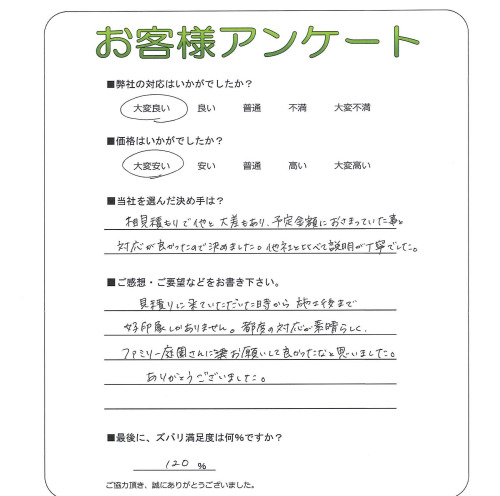 お客様アンケート
■弊社の対応はいかがでしたか？
大変良い 良い 普通 不満 大変不満
■価格はいかがでしたか？
大変安い 安い 普通 高い 大変高い
■当社を選んだ決め手は？
相見積もりで他と大差もあり、予定金額におさまっていた事と
対応が良かったので決めました。他社と比べて説明が丁寧でした。
■ご感想・ご要望などをお書き下さい。
見積りに来ていただいた時から 施工後まで
好印象しかありません。都度の対応が素晴らしく、
ファミリー庭園さんにお願いして良かったなと思いました。
ありがとうございました。
■最後に、ズバリ満足度は何％ですか？
120 ％
ご協力頂き、誠にありがとうございました。